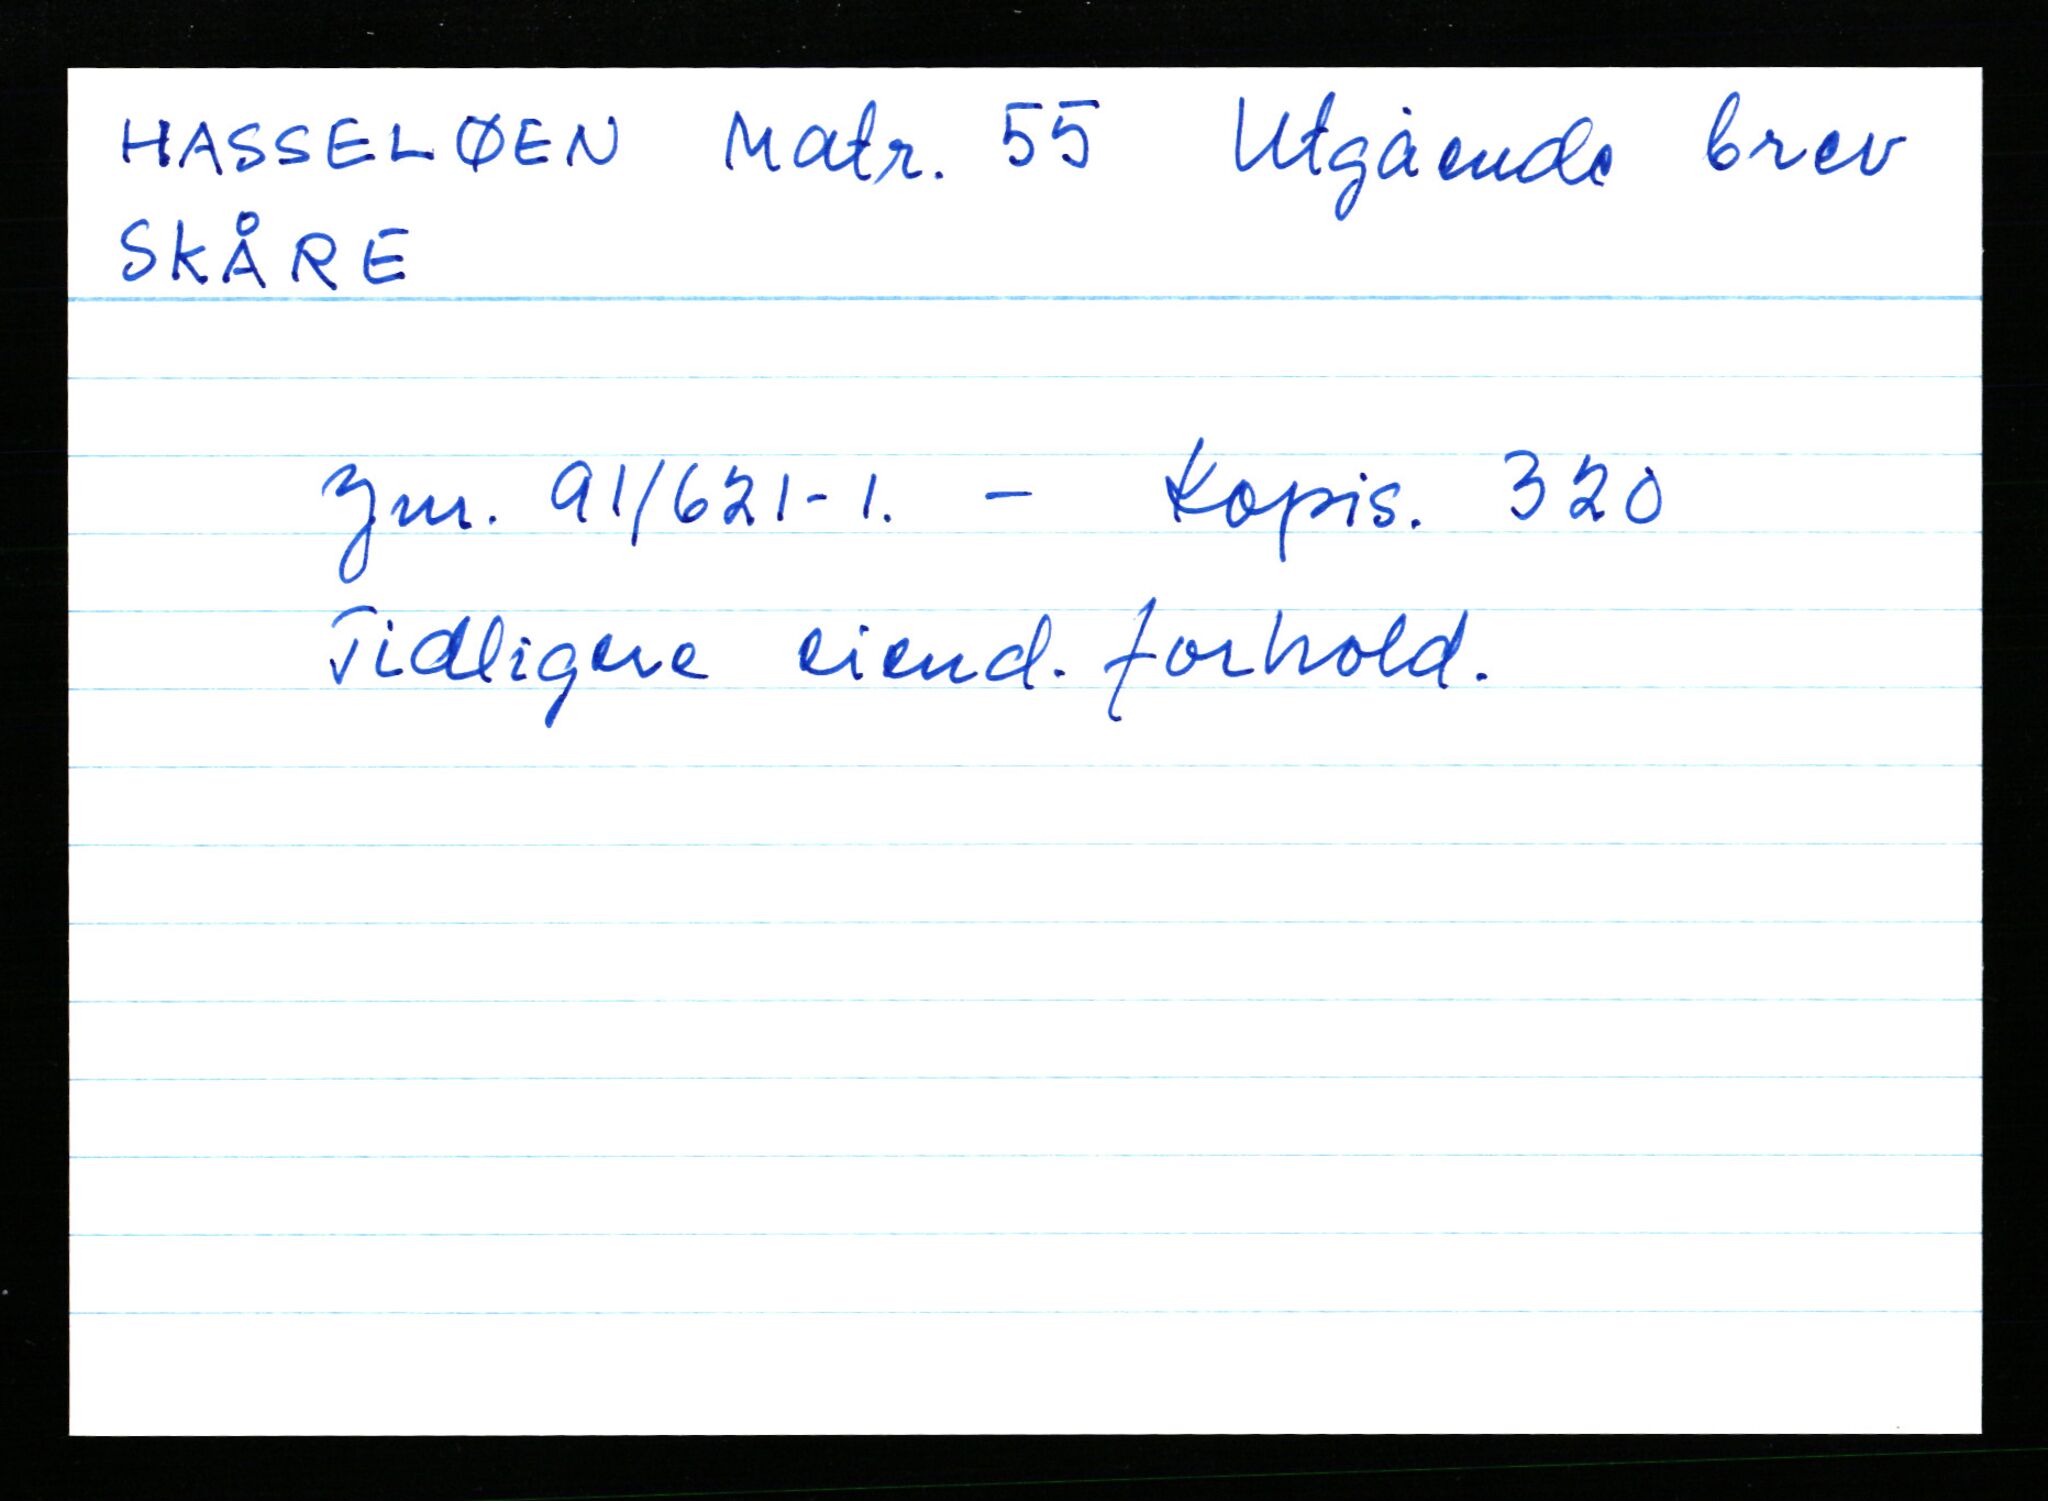 HASSELØEN Matr. 55 Utgående brev
SKÅRE
Jnr. 91/621-1. - Kopis. 320
Tidligere eiend. forhold.